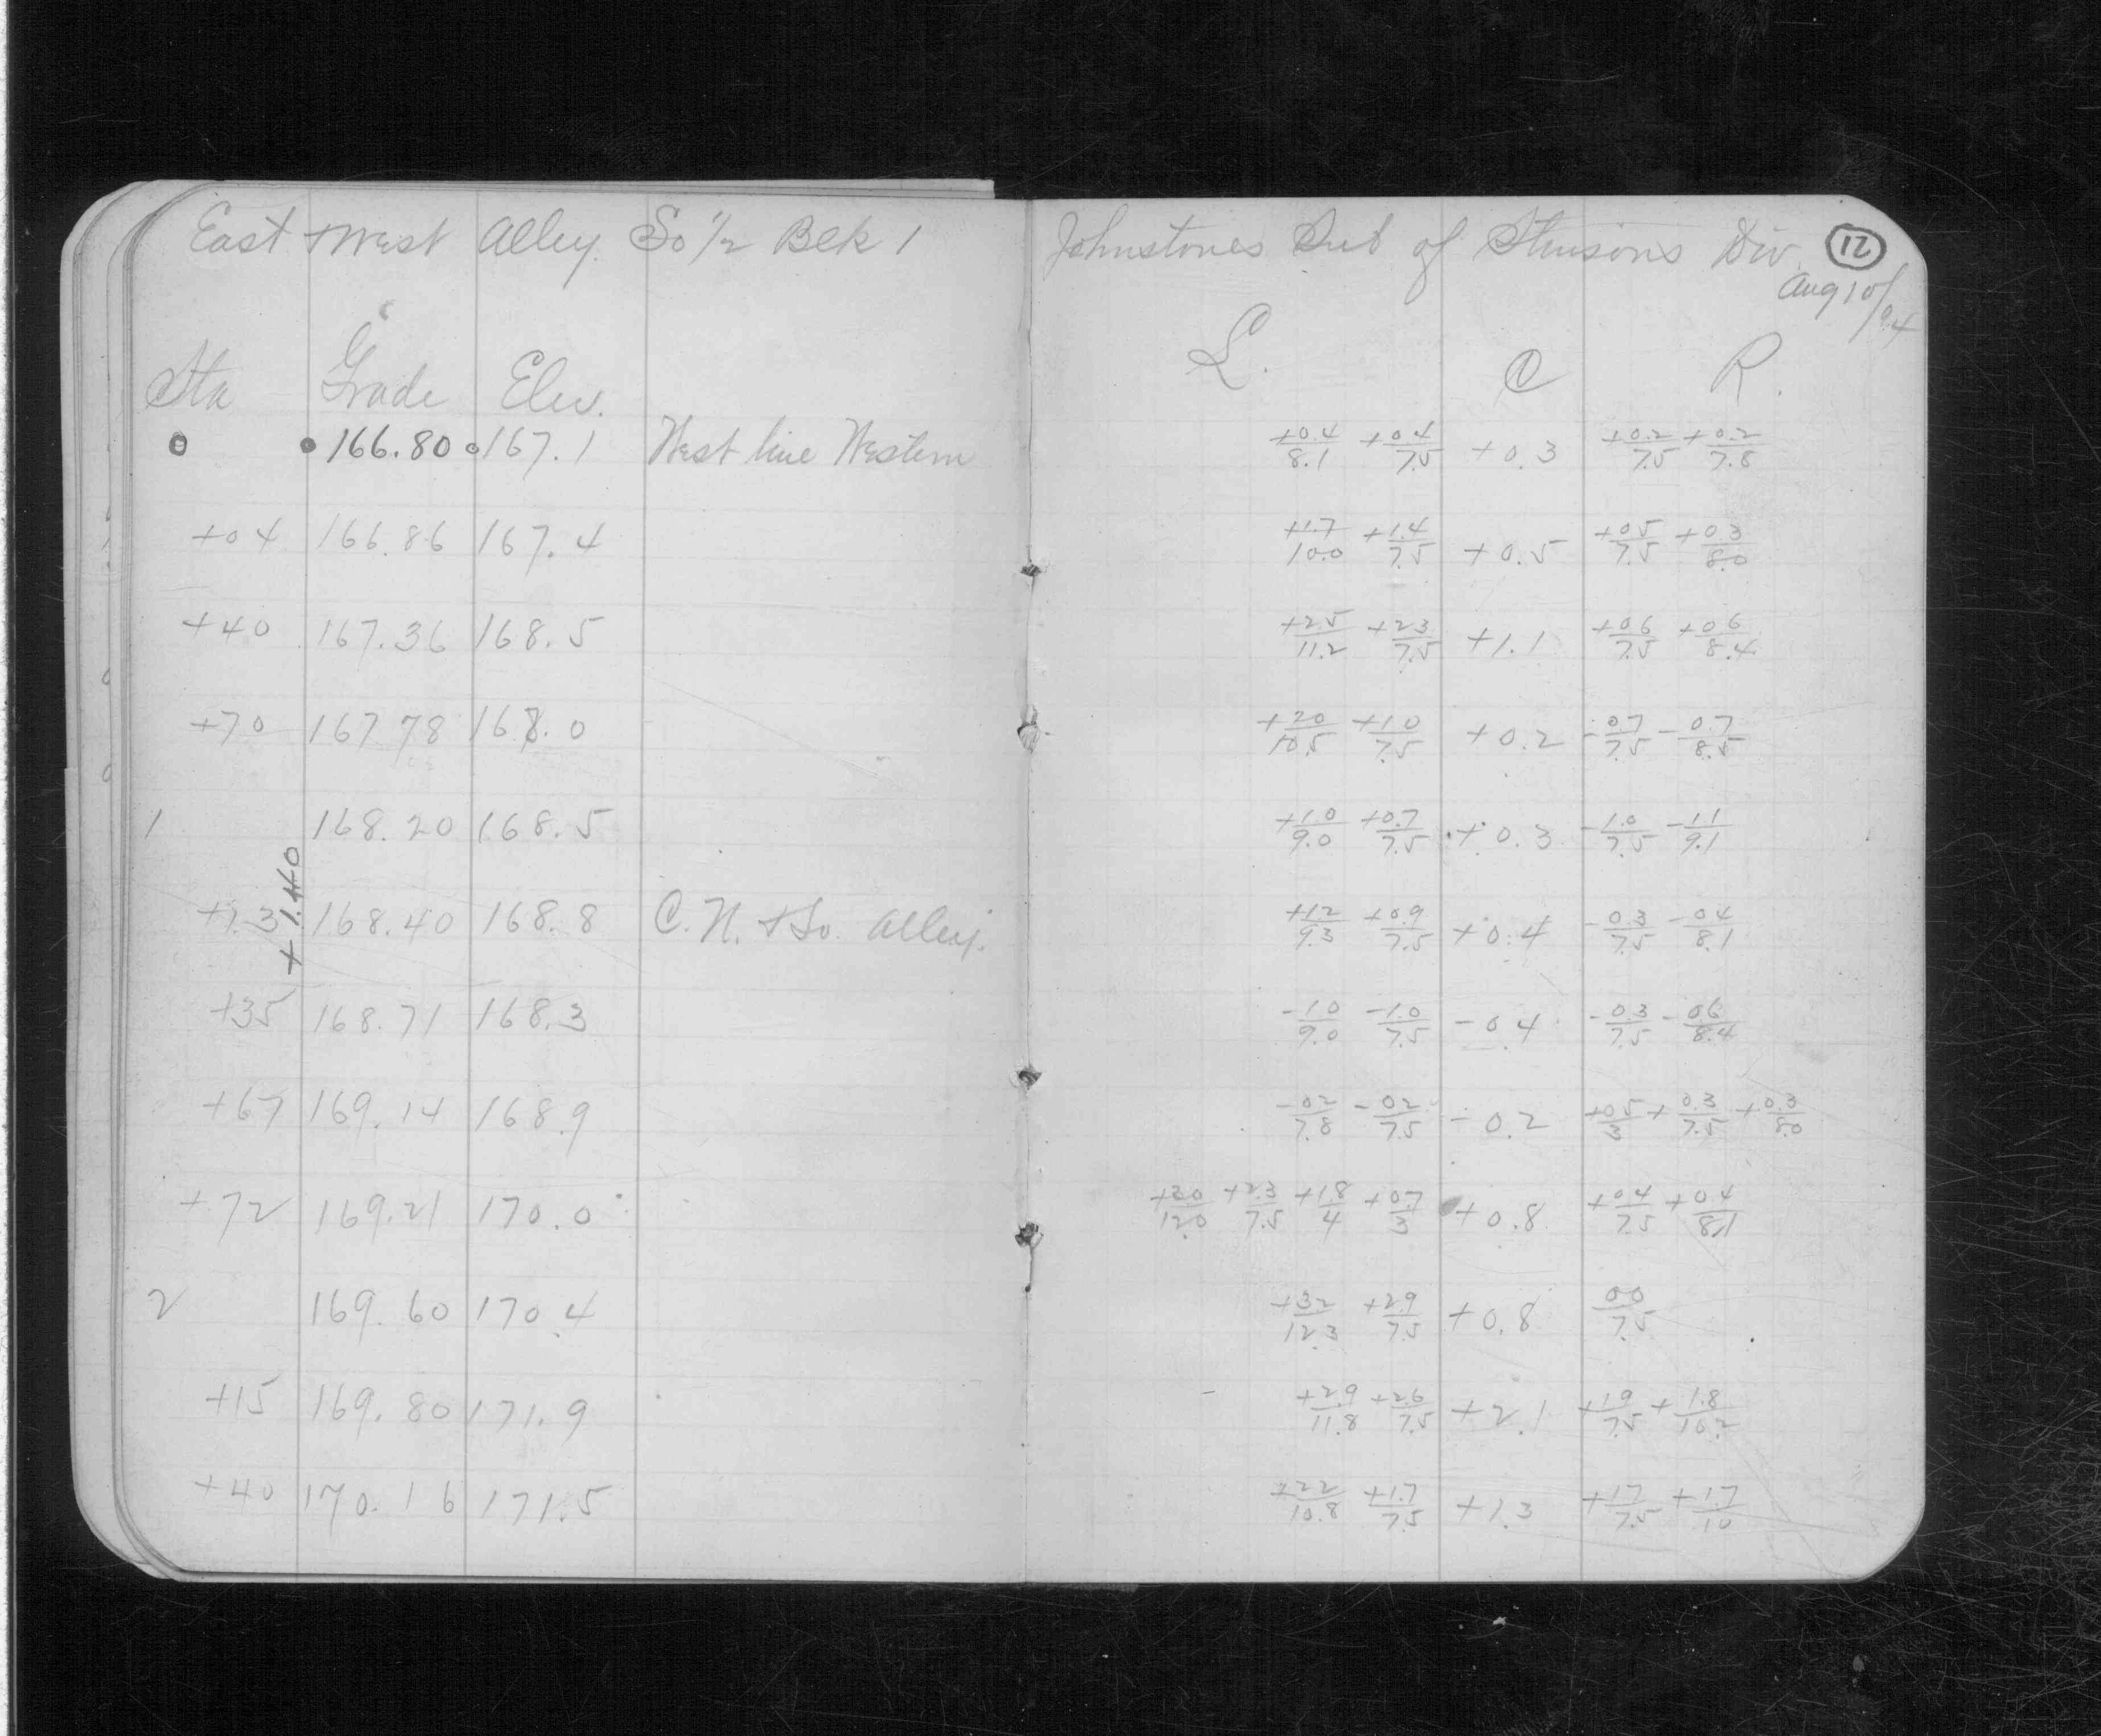 East + West Alley So 1/2 Blk 1 Johnstones Sub of Stinsons Div. 12
Aug 10/04
Sta Grade Elev. L. C R.
0 166.80 167.1 West line Western +0.4/8.1 +0.4/7.5 +0.3 +0.2/7.5 +0.2/7.8
+04 166.86 167.4 +1.7/10.0 +1.4/7.5 +0.5 +0.5/7.5 +0.3/8.0
+40 167.36 168.5 +2.5/11.2 +2.3/7.5 +1.1 +0.6/7.5 +0.6/8.4
+70 167.78 168.0 +2.0/10.5 +1.0/7.5 +0.2 -0.7/7.5 -0.7/8.5
1 168.20 168.5 +1.0/9.0 +0.7/7.5 +0.3 -1.0/7.5 -1.1/9.1
+1.40
+13 168.40 168.8 C. N. + So. Alley. +1.2/9.3 +0.9/7.5 +0.4 -0.3/7.5 -0.4/8.1
+35 168.71 168.3 -1.0/9.0 -1.0/7.5 -0.4 -0.3/7.5 -0.6/8.4
+67 169.14 168.9 -0.2/7.8 -0.2/7.5 -0.2 +0.5/3 +0.3/7.5 +0.3/8.0
+72 169.21 170.0 +3.0/12.0 +2.3/7.5 +1.8/4 +0.7/3 +0.8 +0.4/7.5 +0.4/8.1
2 169.60 170.4 +3.2/12.3 +2.9/7.5 +0.8 0.0/7.5
+15 169.80 171.9 +2.9/11.8 +2.6/7.5 +2.1 +1.9/7.5 +1.8/10.2
+40 170.16 171.5 +2.2/10.8 +1.7/7.5 +1.3 +1.7/7.5 +1.7/10